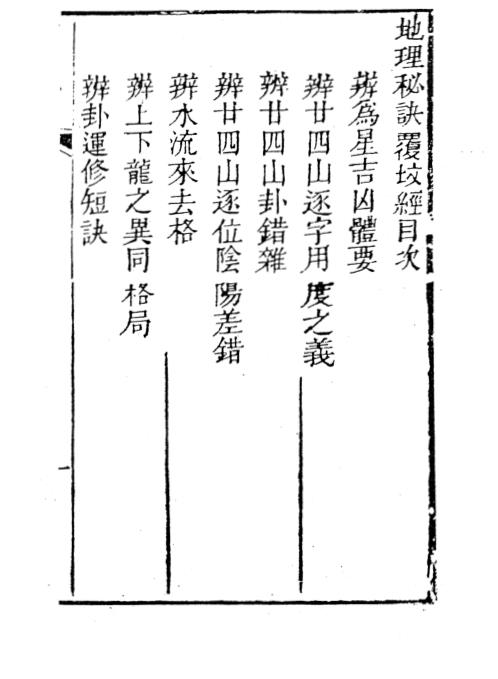 地理秘訣覆坟經目次
辨為星吉凶體要
辨廿四山逐字用度之義
辨廿四山卦錯雜
辨廿四山逐位陰陽差錯
辨水流來去格
辨上下龍之異同格局
辨卦運修短訣
一